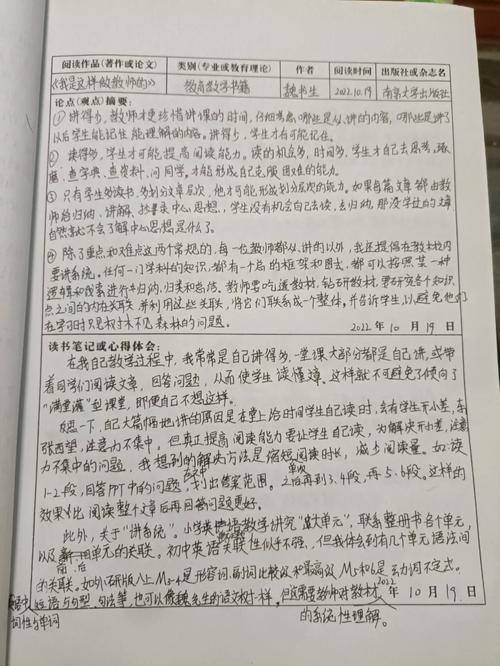 阅读作品(著作或论文) 类别(专业或教育理论) 作者 阅读时间 出版社或杂志名
《我是这样做教师的》 教育教学书籍 魏书生 2022.10.19 南京大学出版社
论点(观点)摘要:
① 讲得少,教师才更珍惜讲课的时间,仔细考虑哪些是必讲的内容,哪些是讲了
以后学生能记住、能理解的内容。讲得少,学生才有可能记住。
② 读得多,学生才可能提高阅读能力。读的机会多,时间多,学生才自己去思考,琢
磨、查字典、查资料、问同学,才能形成自己克服困难的能力。
③ 只有学生多读书、多划分文章层次,他才可能形成划分层次的能力。如果每篇文章都由教
师给归纳、讲解、抄中心思想,学生没有机会自己去读,去归纳,那没学过的文章
自然就不会了解中心思想是什么了。
④ 除了重点和难点这两个常规的,每一位教师都必讲的以外,我还提倡在教本校内
要讲系统。任何一门学科的知识,都有一个总的框架和图式,都可以按照某一种
逻辑和线索进行归纳,归类和总结。教师要吃透教材,钻研教材,要研究各个知识
点之间的内在关联,并利用这些关联,将它们联系成一个整体,并告诉学生,以避免他们
在学习时只见树木不见森林的问题。
2022 年 10 月 19 日
读书笔记或心得体会:
在我自己教学过程中,我常常是自己讲得多,一堂课大部分都是自己讲,或带
着同学们阅读文章,回答问题,从而使学生读懂文章,这样就不可避免了倾向了
“满堂灌”的课堂,即便自己不想这样。
反思一下,自己大篇幅地讲的原因是本堂上给时间学生自己读时,会有学生开小差,东
张西望,注意力不集中。但真正提高阅读能力要让学生自己读,为解决开小差,注意
力不集中的问题,我想到的解决方法是缩短阅读时长,减少阅读量。如:读
1-2段,回答PPT中的问题,划出答案范围。之后再到3.4段,再5.6段。这样的
效果对比阅读整个文章后再回答问题更好。
此外,关于“讲系统”。小学英语教学讲究“大单元”,联系整册书各个单元,
以及前后单元的关联。初中英语关联性似乎不强,但我体会到有几个单元语法间
的关联。如外研版八上M3-4是形容词、副词比较级和最高级,M5和6是动词不定式。
短语与句型、句法等,也可以像魏先生的语文树一样。但这需要教师对教材
词性与单词 的系统性理解。
2022 年 10 月 19 日